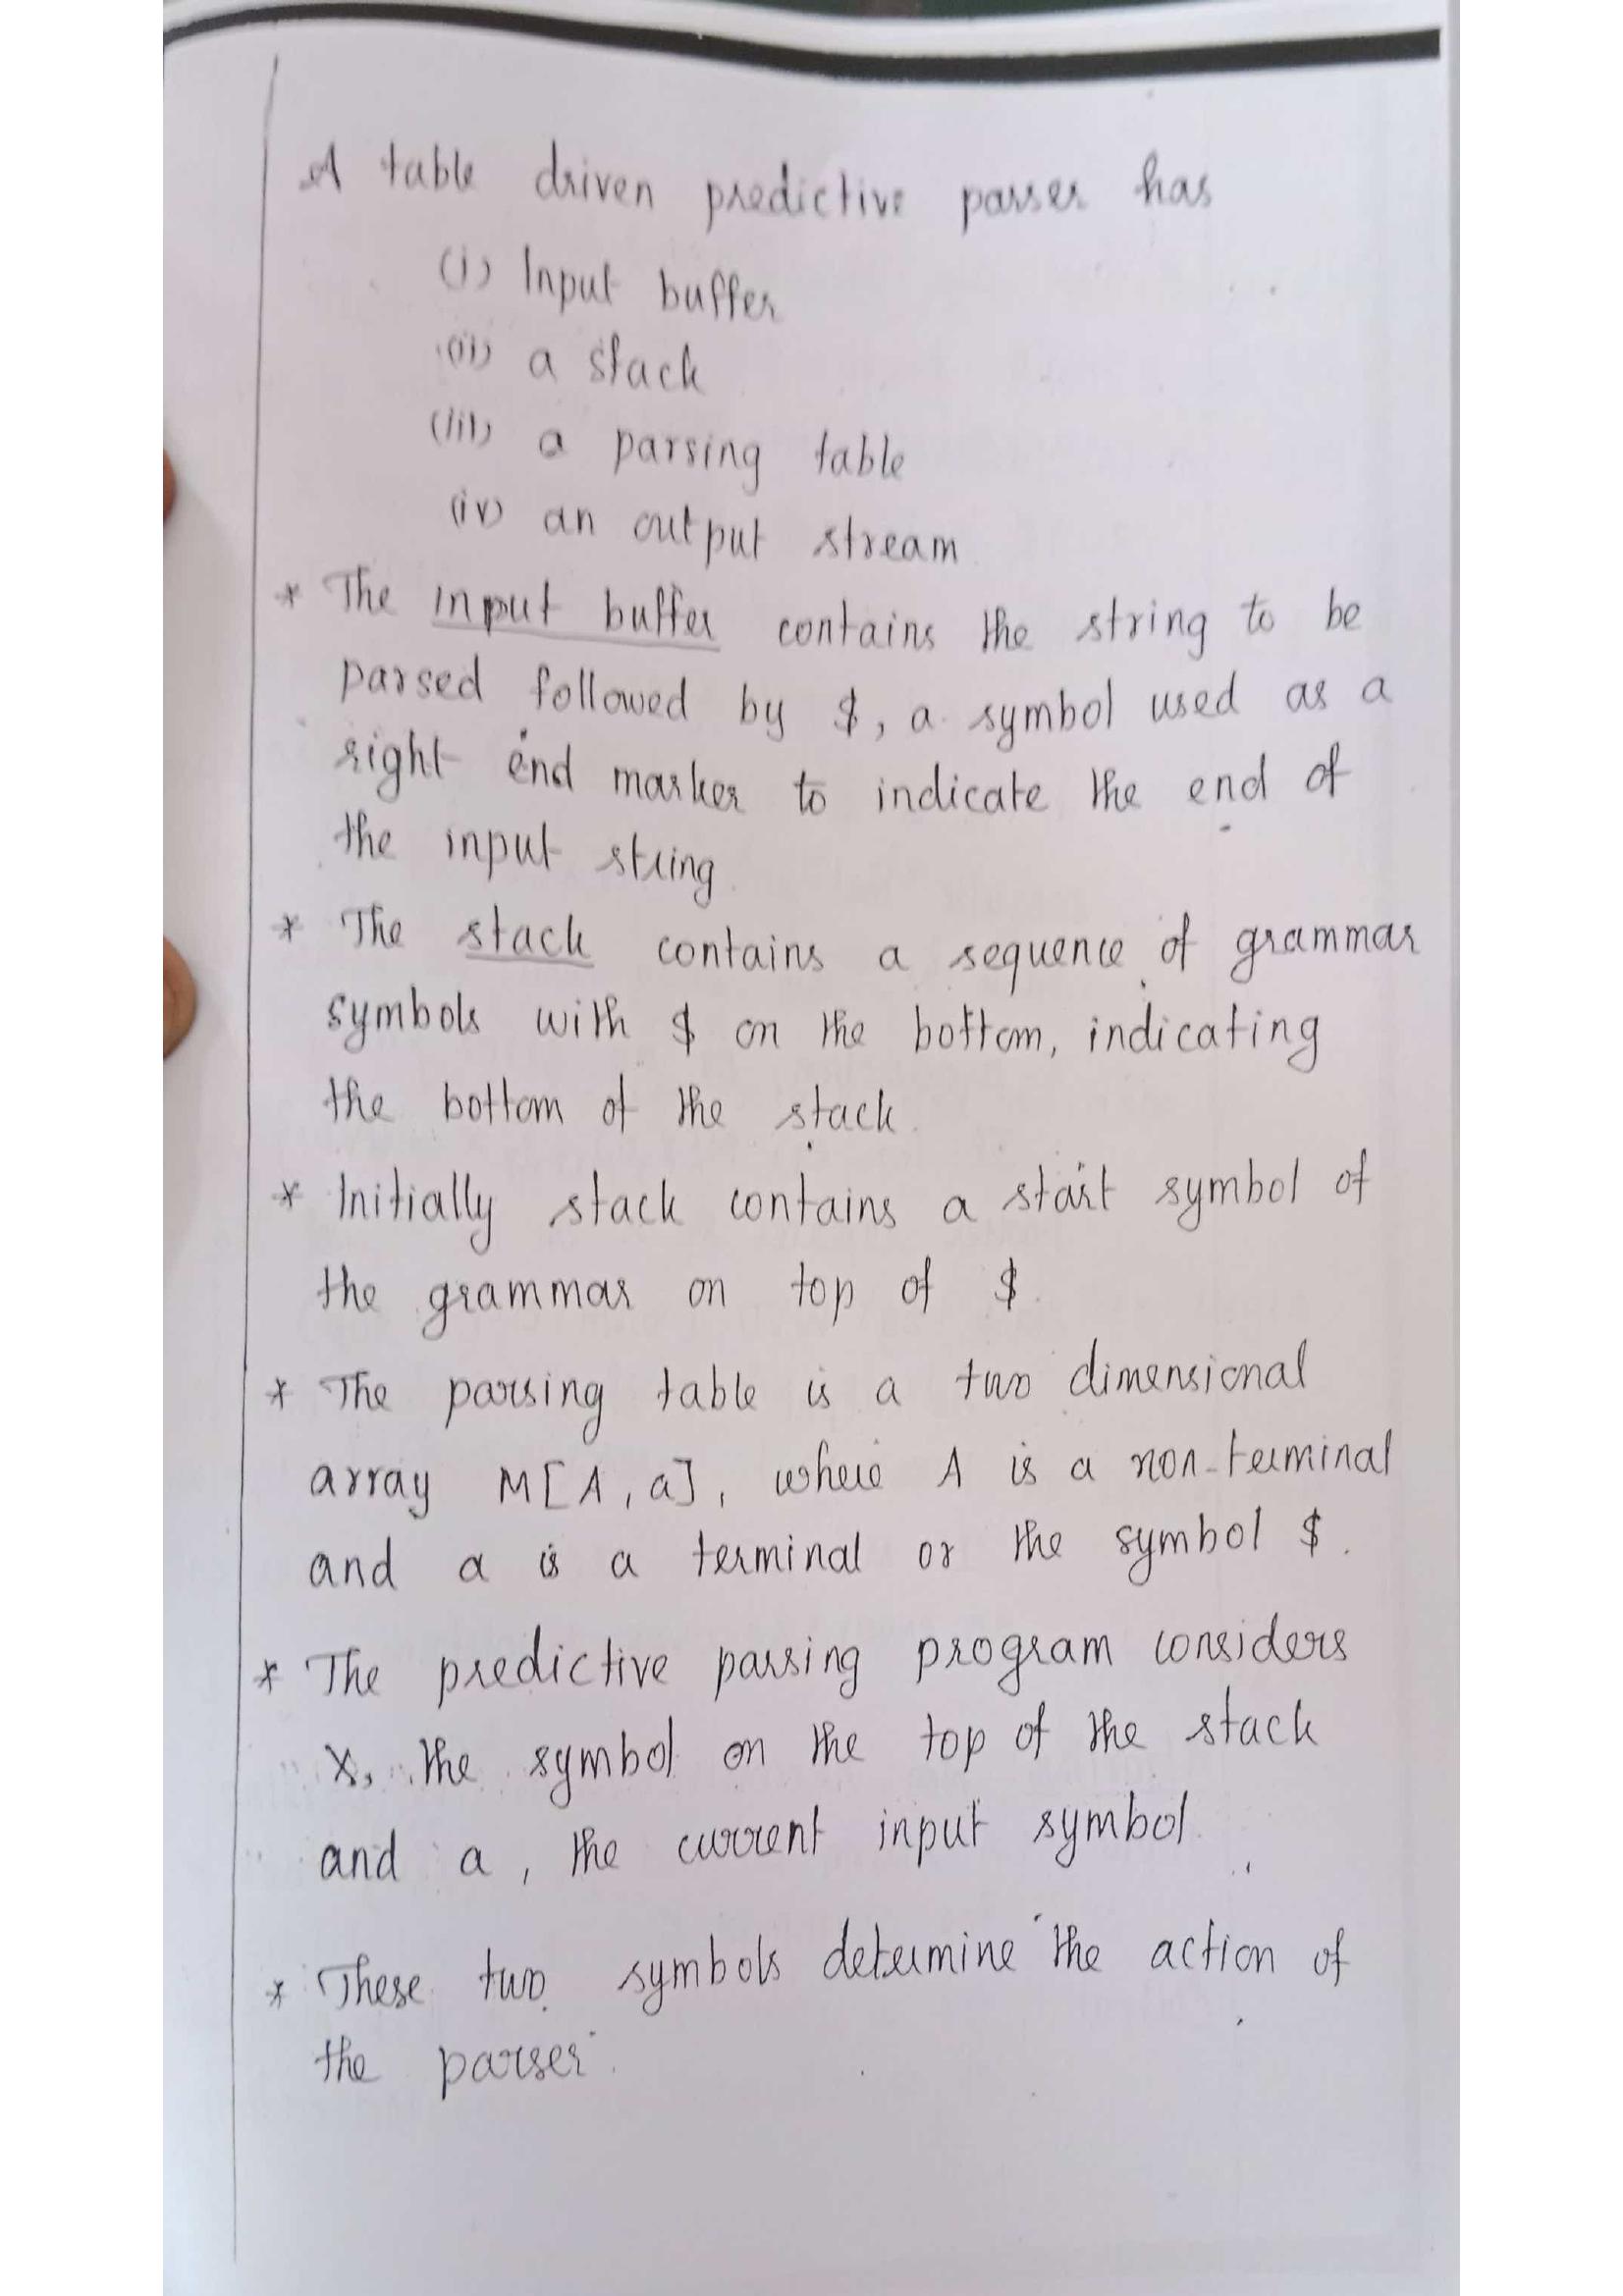 A table driven predictive parser has
(i) Input buffer
(ii) a stack
(iii) a parsing table
(iv) an output stream
* The input buffer contains the string to be
parsed followed by $, a symbol used as a
right end marker to indicate the end of
the input string.
* The stack contains a sequence of grammar
symbols with $ on the bottom, indicating
the bottom of the stack.
* Initially stack contains a start symbol of
the grammar on top of $.
* The parsing table is a two dimensional
array M[A, a], where A is a non-terminal
and a is a terminal or the symbol $.
* The predictive parsing program considers
X, the symbol on the top of the stack
and a, the current input symbol.
* These two symbols determine the action of
the parser.